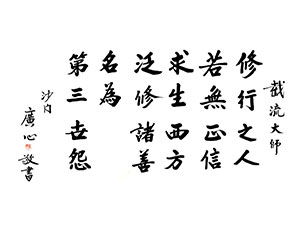 截流大师
修行之人
若無正信
求生西方
泛修諸善
名為
第三世怨
沙内
廣心敬書